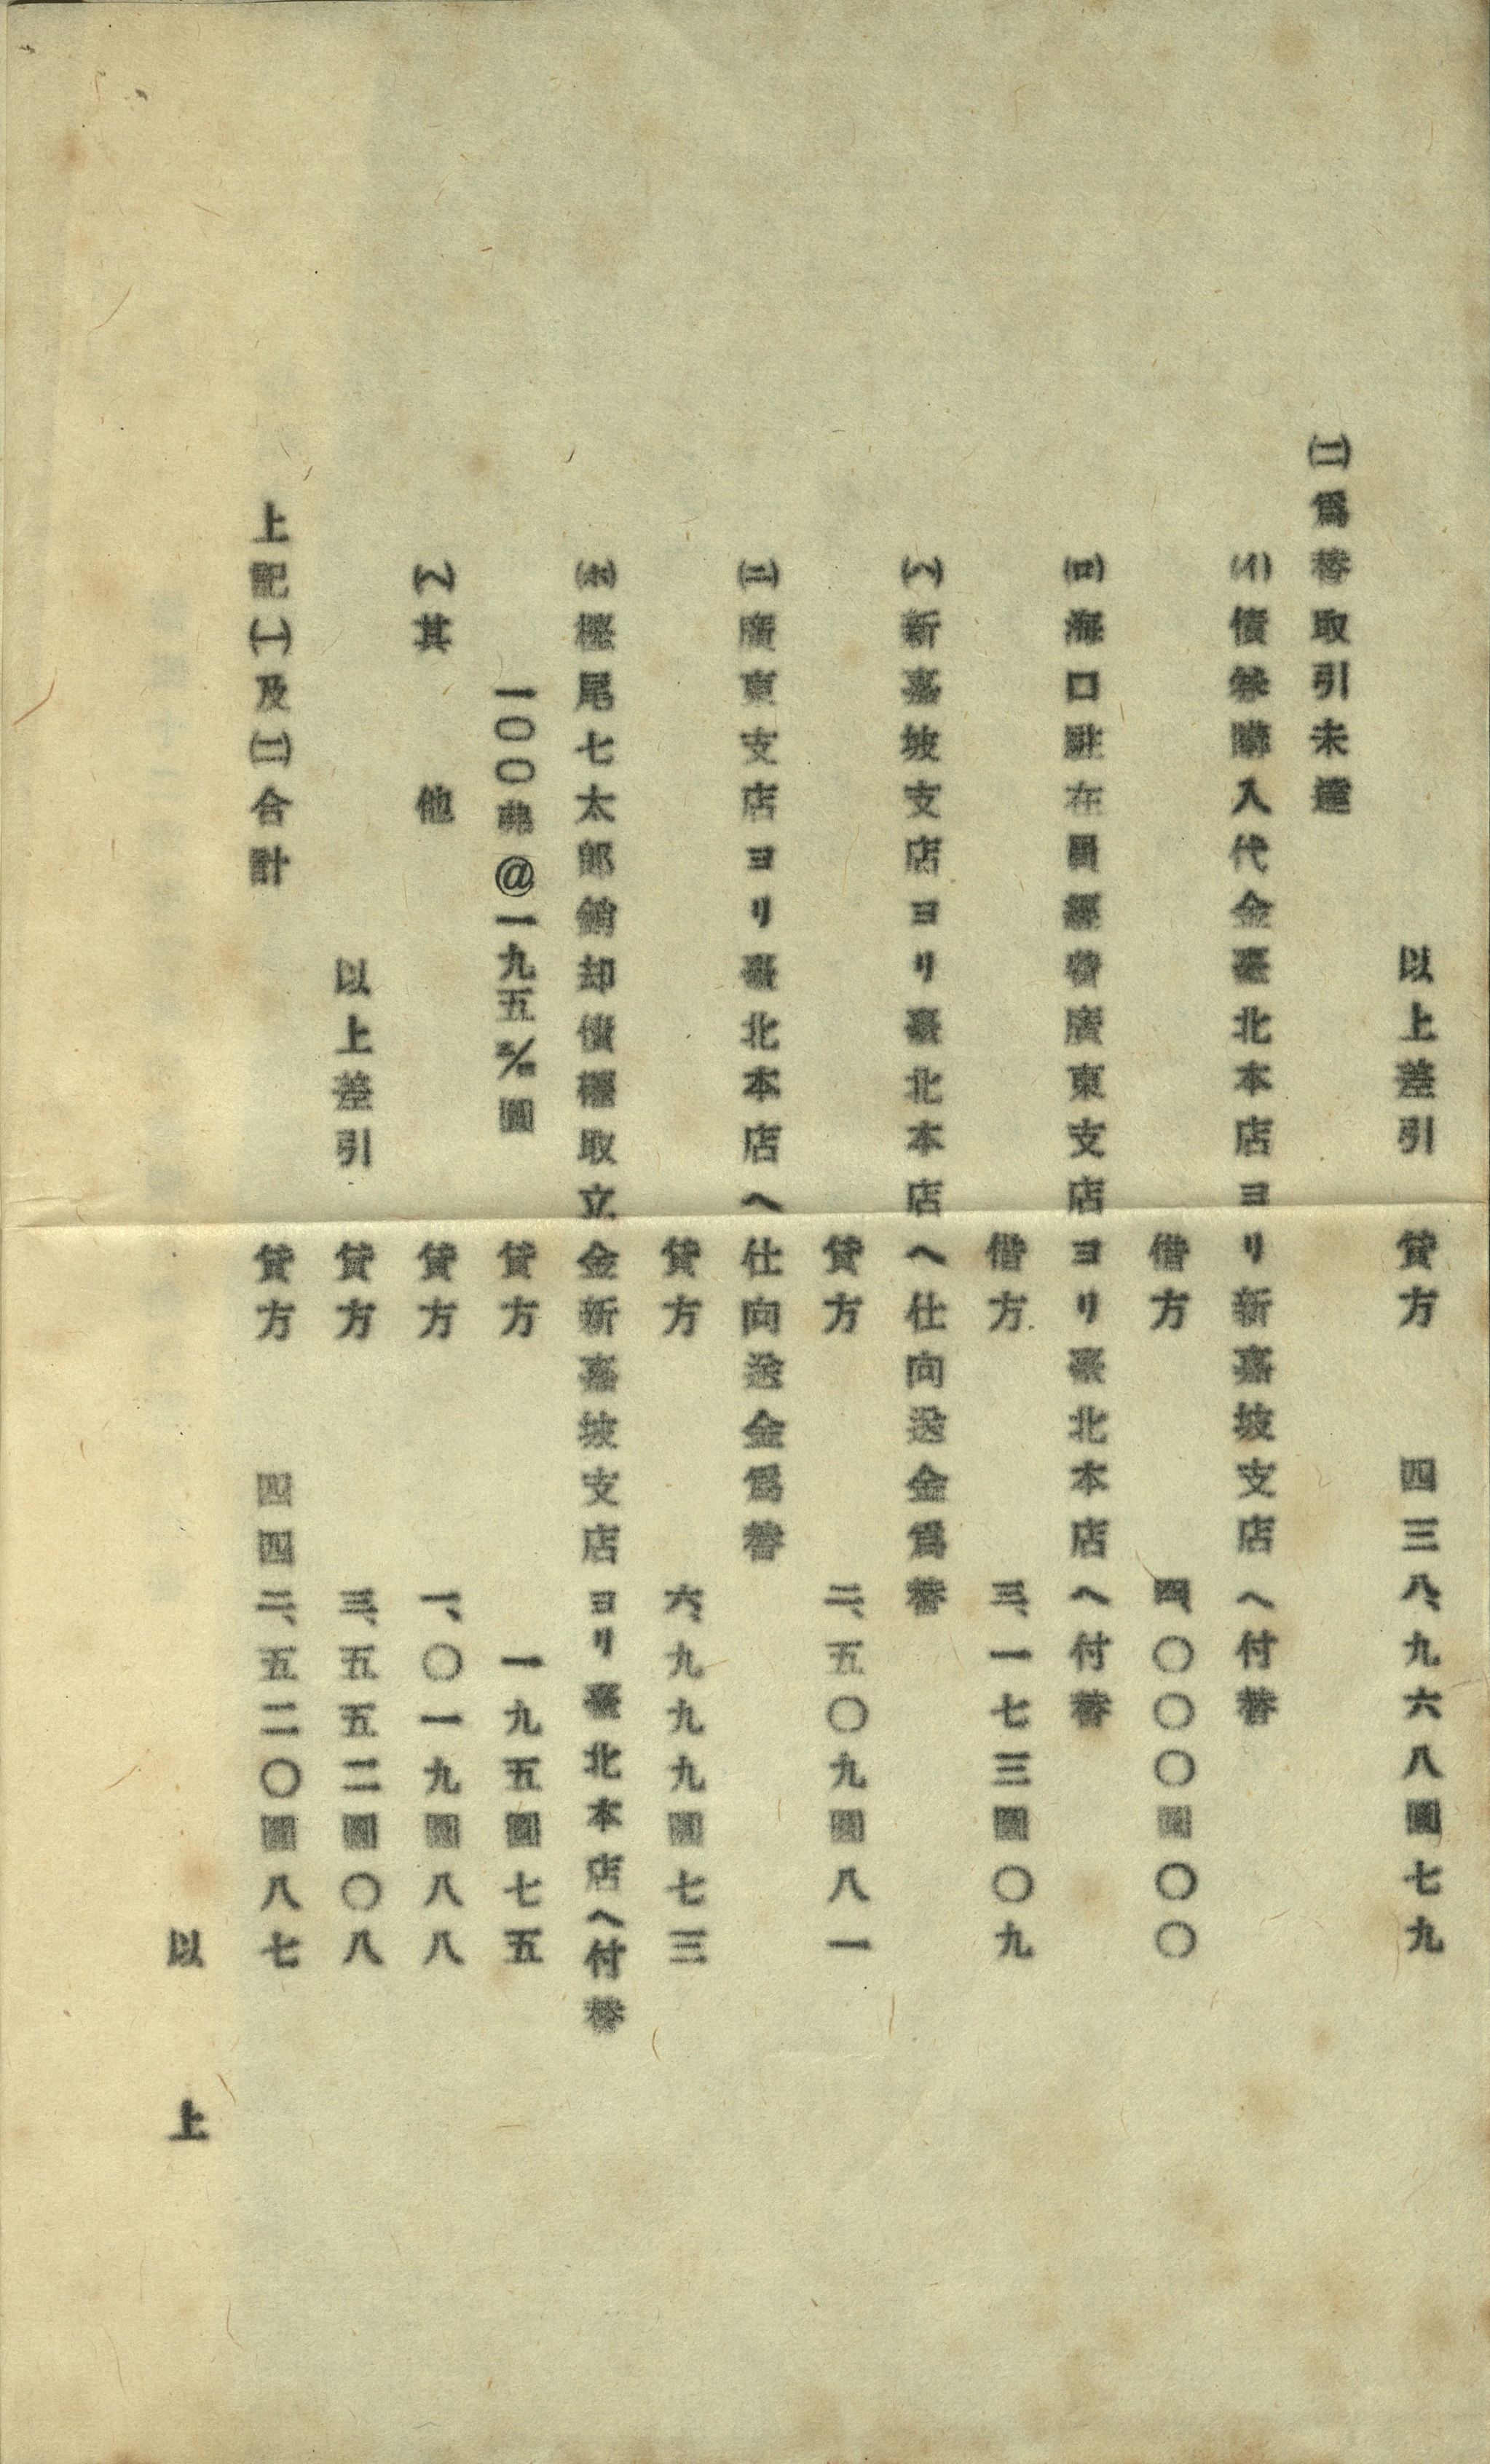 以上差引 貸方 四三八、九六八圓七九
㈡爲替取引未達
(イ)債券購入代金臺北本店ヨリ新嘉坡支店ヘ付替
借方 四、〇〇〇圓〇〇
(ロ)海口駐在員經替廣東支店ヨリ臺北本店ヘ付替
借方 三、一七三圓〇九
(ハ)新嘉坡支店ヨリ臺北本店ヘ仕向送金爲替
貸方 二、五〇九圓八一
(ニ)廣東支店ヨリ臺北本店ヘ仕向送金爲替
貸方 六、九九九圓七三
(ホ)樫尾七太郎銷却債權取立金新嘉坡支店ヨリ臺北本店ヘ付替
一〇〇弗@一九五 圓 貸方 一九五圓七五
(ヘ)其他 貸方 一、〇一九圓八八
以上差引 貸方 三、五五二圓〇八
上記㈠及㈡合計 貸方 四四二、五二〇圓八七
以上